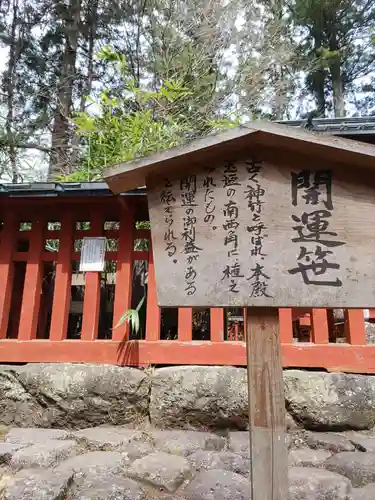 開運笹
古く神苻と呼ばれ本殿
玉垣の南西角に種え
られたもの。
開運の御利益があ
ると伝えられる。